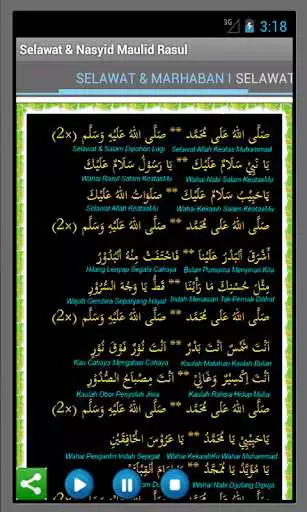 3G 3:18
Selawat & Nasyid Maulid Rasul
SELAWAT & MARHABAN I SELAWAT
صَلَّى اللهُ عَلَى مُحَمَّد ** صَلَّى اللهُ عَلَيْهِ وَسَلَّم (2x)
Selawat & Salam Dipohon Lagi Selawat Allah Keatas Muhammad
يَا نَبِي سَلَامٌ عَلَيْكَ ** يَا رَسُوْلُ سَلَامٌ عَلَيْكَ
Wahai Rasul Salam KeatasMu Wahai Nabi Salam KeatasMu
يَاحَبِيْبُ سَلَامٌ عَلَيْكَ ** صَلَوَاتُ اللهُ عَلَيْكَ
Selawat Allah KeatasMu Wahai Kekasih Salam KeatasMu
صَلَّى اللهُ عَلَى مُحَمَّد ** صَلَّى اللهُ عَلَيْهِ وَسَلَّم (2x)
أَشْرَقَ الْبَدْرُ عَلَيْنَا ** فَاخْتَفَتْ مِنْهُ الْبُدُوْرُ
Hilang Lenyap Segala Cahaya Bulan Purnama Menyinari Kita
مِثْلَ حُسْنِكَ مَا رَأَيْنَا ** قَطُّ يَا وَجْهَ السُّرُوْرِ
Wajah Gembira Sepanjang Hayat Indah Menawan Tak Pernah Dilihat
صَلَّى اللهُ عَلَى مُحَمَّد ** صَلَّى اللهُ عَلَيْهِ وَسَلَّم (2x)
اَنْتَ شَمْسٌ اَنْتَ بَدْرٌ ** اَنْتَ نُوْرٌ فَوْقَ نُوْرٍ
Kau Cahaya Mengatasi Cahaya Kaulah Matahari Kaulah Bulan
اَنْتَ إِكْسِيْرٌ وَغَالِيْ ** اَنْتَ مِصْبَاحُ الصُّدُوْرِ
Kaulah Obor Penyuluh Jiwa Kaulah Rahsia Hidup Mulia
صَلَّى اللهُ عَلَى مُحَمَّد ** صَلَّى اللهُ عَلَيْهِ وَسَلَّم (2x)
يَاحَبِيْبِيْ يَا مُحَمَّدُ ** يَا عَرُوْسَ الْخَافِقَيْنِ
Wahai Pengantin Indah Sejagat Wahai Kekasihku Wahai Muhammad
يَا مُؤَيَّدُ يَا مُمَجَّدُ ** يَا إِمَامَ الْقِبْلَتَيْنِ
Wahai Nabi Dijulang Dipuja